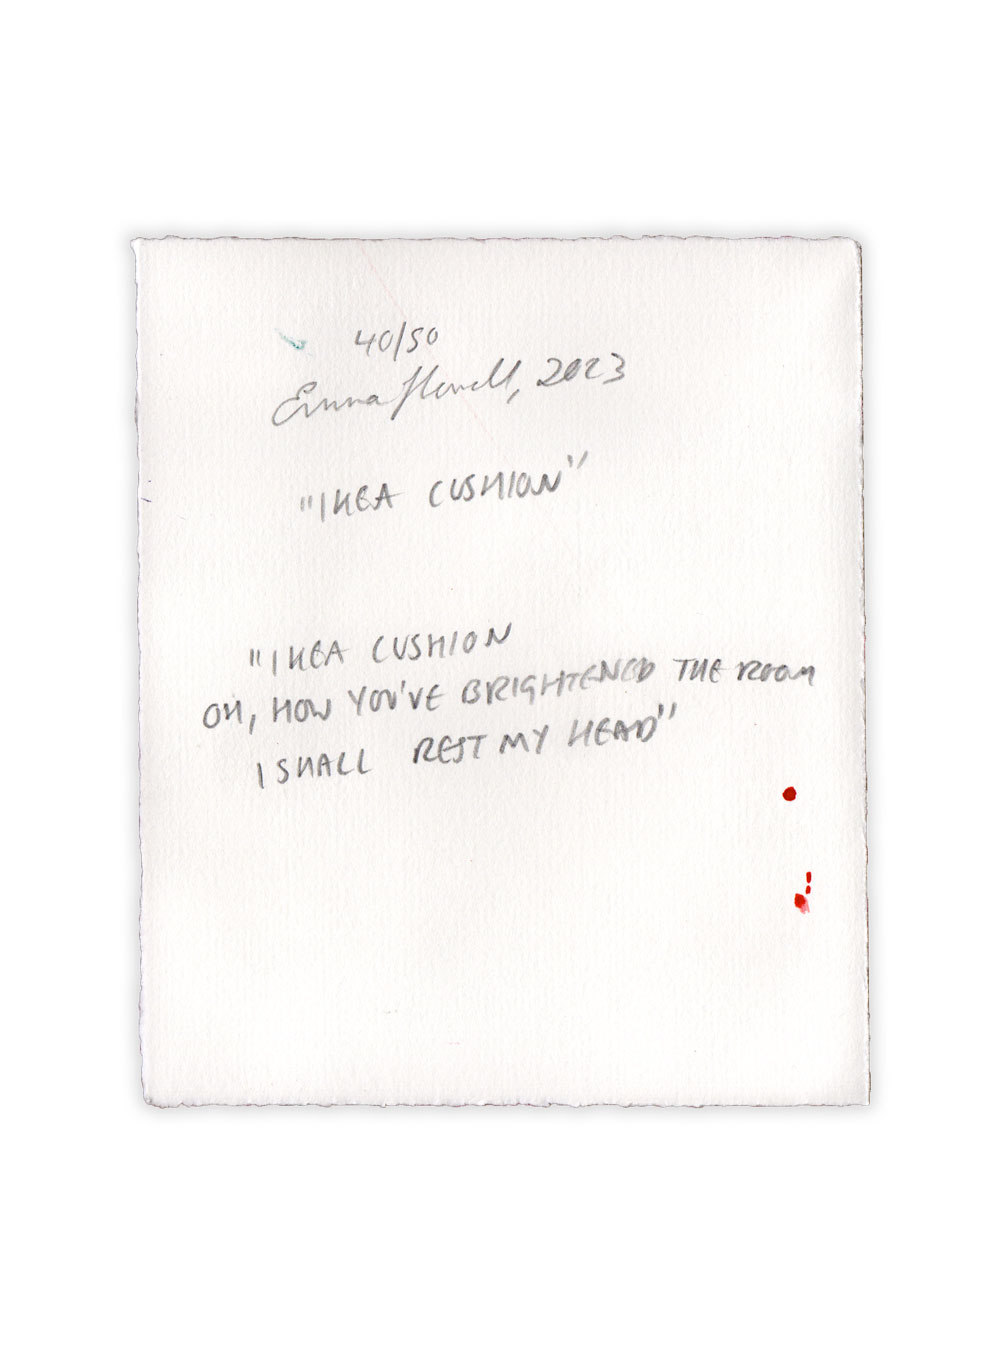 40/50
Emma Howell, 2023
"IKEA CUSHION"
"IKEA CUSHION
OH, HOW YOU'VE BRIGHTENED THE ROOM
I SHALL REST MY HEAD"